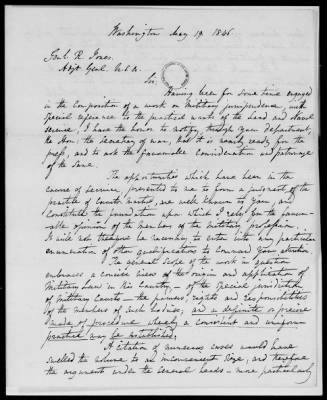 Washington May 19. 1846.
Genl. R. Jones
Adjt Genl. U.S.A.
Sir,
Having been for some time engaged
in the Composition of a work on Military jurisprudence, with
special reference to the practical wants of the land and naval
service, I have the honor to notify, through your department,
the Hon: the Secretary of War, that it is nearly ready for the
press, and to ask the favourable consideration and patronage
of the Same.
The opportunities which have been in the
course of service, presented to me to form a judgment of the
practice of Courts martial, are well known to you, and
Constitute the foundation upon which I rely for the favour-
able opinion of the members of the Military profession.
It will not therefore be necessary to enter into any particular
enumeration of other qualifications to command your attention.
The general Scope of the work in question
embraces a concise view of the origin and application of
Military Law in this Country, - of the special jurisdiction
of Military Courts - the powers, rights and responsibilities
of the members of such bodies, and a definite or precise
mode of procedure whereby a consistent and uniform
practice may be established.
A citation of numerous cases would have
swelled the volume to an inconvenient size, and therefore
the arguments under the several heads - more particularly